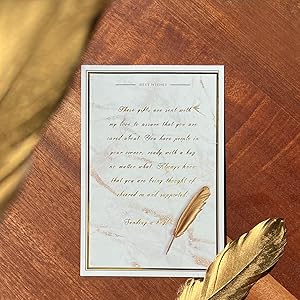 BEST WISHES
These gifts are sent with
my love to assure that you are
cared about. You have people in
your corner, ready with a hug
no matter what. Always know
that you are being thought of
cheered on and supported.
Sending a hug